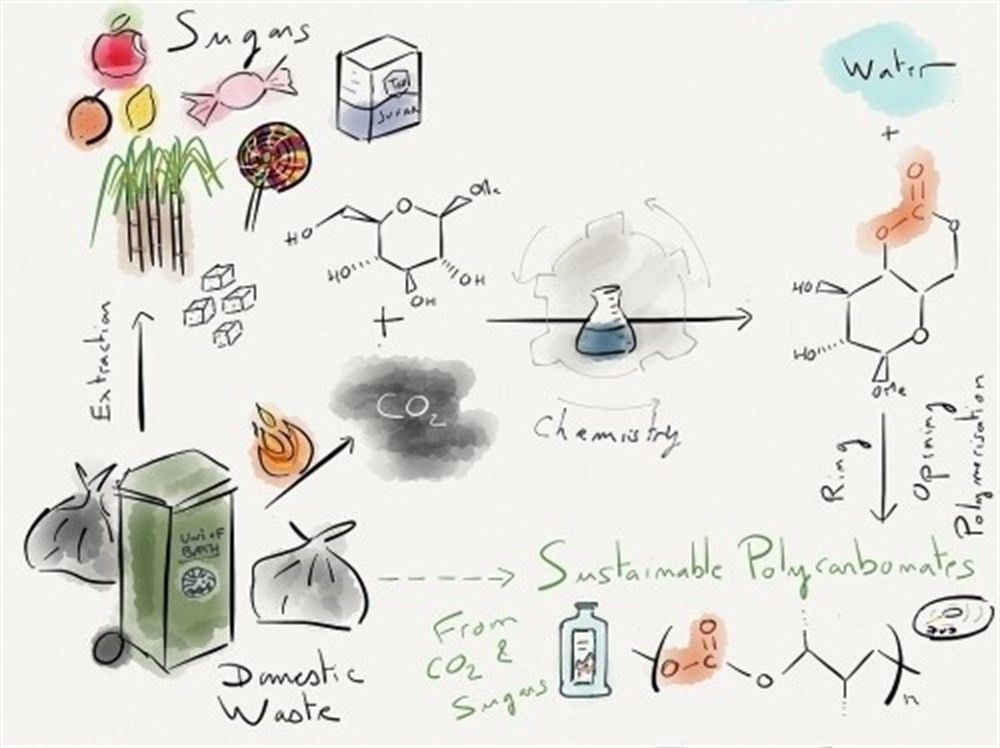 Sugars
T&L
Sugar
Water
+
O
O
C
O
HO
HO
O
OMe
HO
O
OMe
HO
OH
OH
+
CO2
Extraction
Chemistry
Ring
Opining
Polymerisation
UNI OF
BATH
Domestic
Waste
Sustainable Polycarbonates
From
CO2 &
Sugars
O
O
C
O
n
DVD